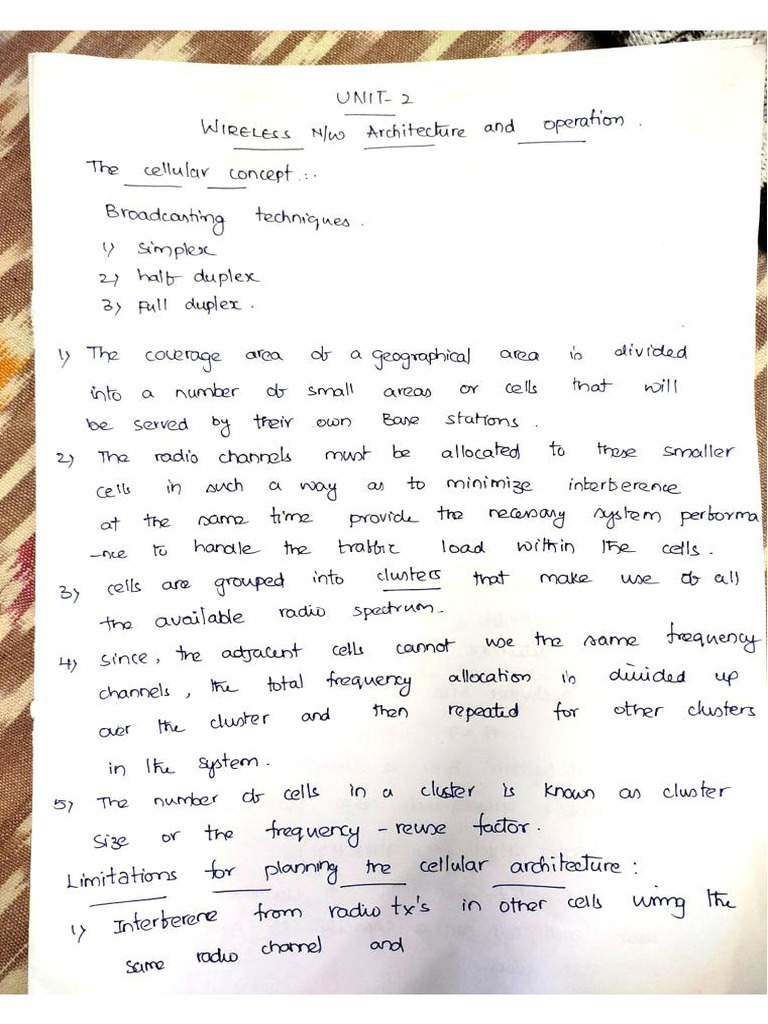 UNIT-2
WIRELESS N/W Architecture and operation.
The cellular concept :-
Broadcasting techniques.
1) simplex
2) half duplex
3) Full duplex.
1) The coverage area of a geographical area is divided
into a number of small areas or cells that will
be served by their own Base stations.
2) The radio channels must be allocated to these smaller
cells in such a way as to minimize interference
at the same time provide the necessary system performa
-nce to handle the traffic load within the cells.
3) cells are grouped into clusters that make use of all
the available radio spectrum.
4) since, the adjacent cells cannot use the same frequency
channels, the total frequency allocation is divided up
over the cluster and then repeated for other clusters
in the system.
5) The number of cells in a cluster is known as cluster
size or the frequency-reuse factor.
Limitations for planning the cellular architecture:
1) Interferene from radio tx's in other cells using the
same radio channel and